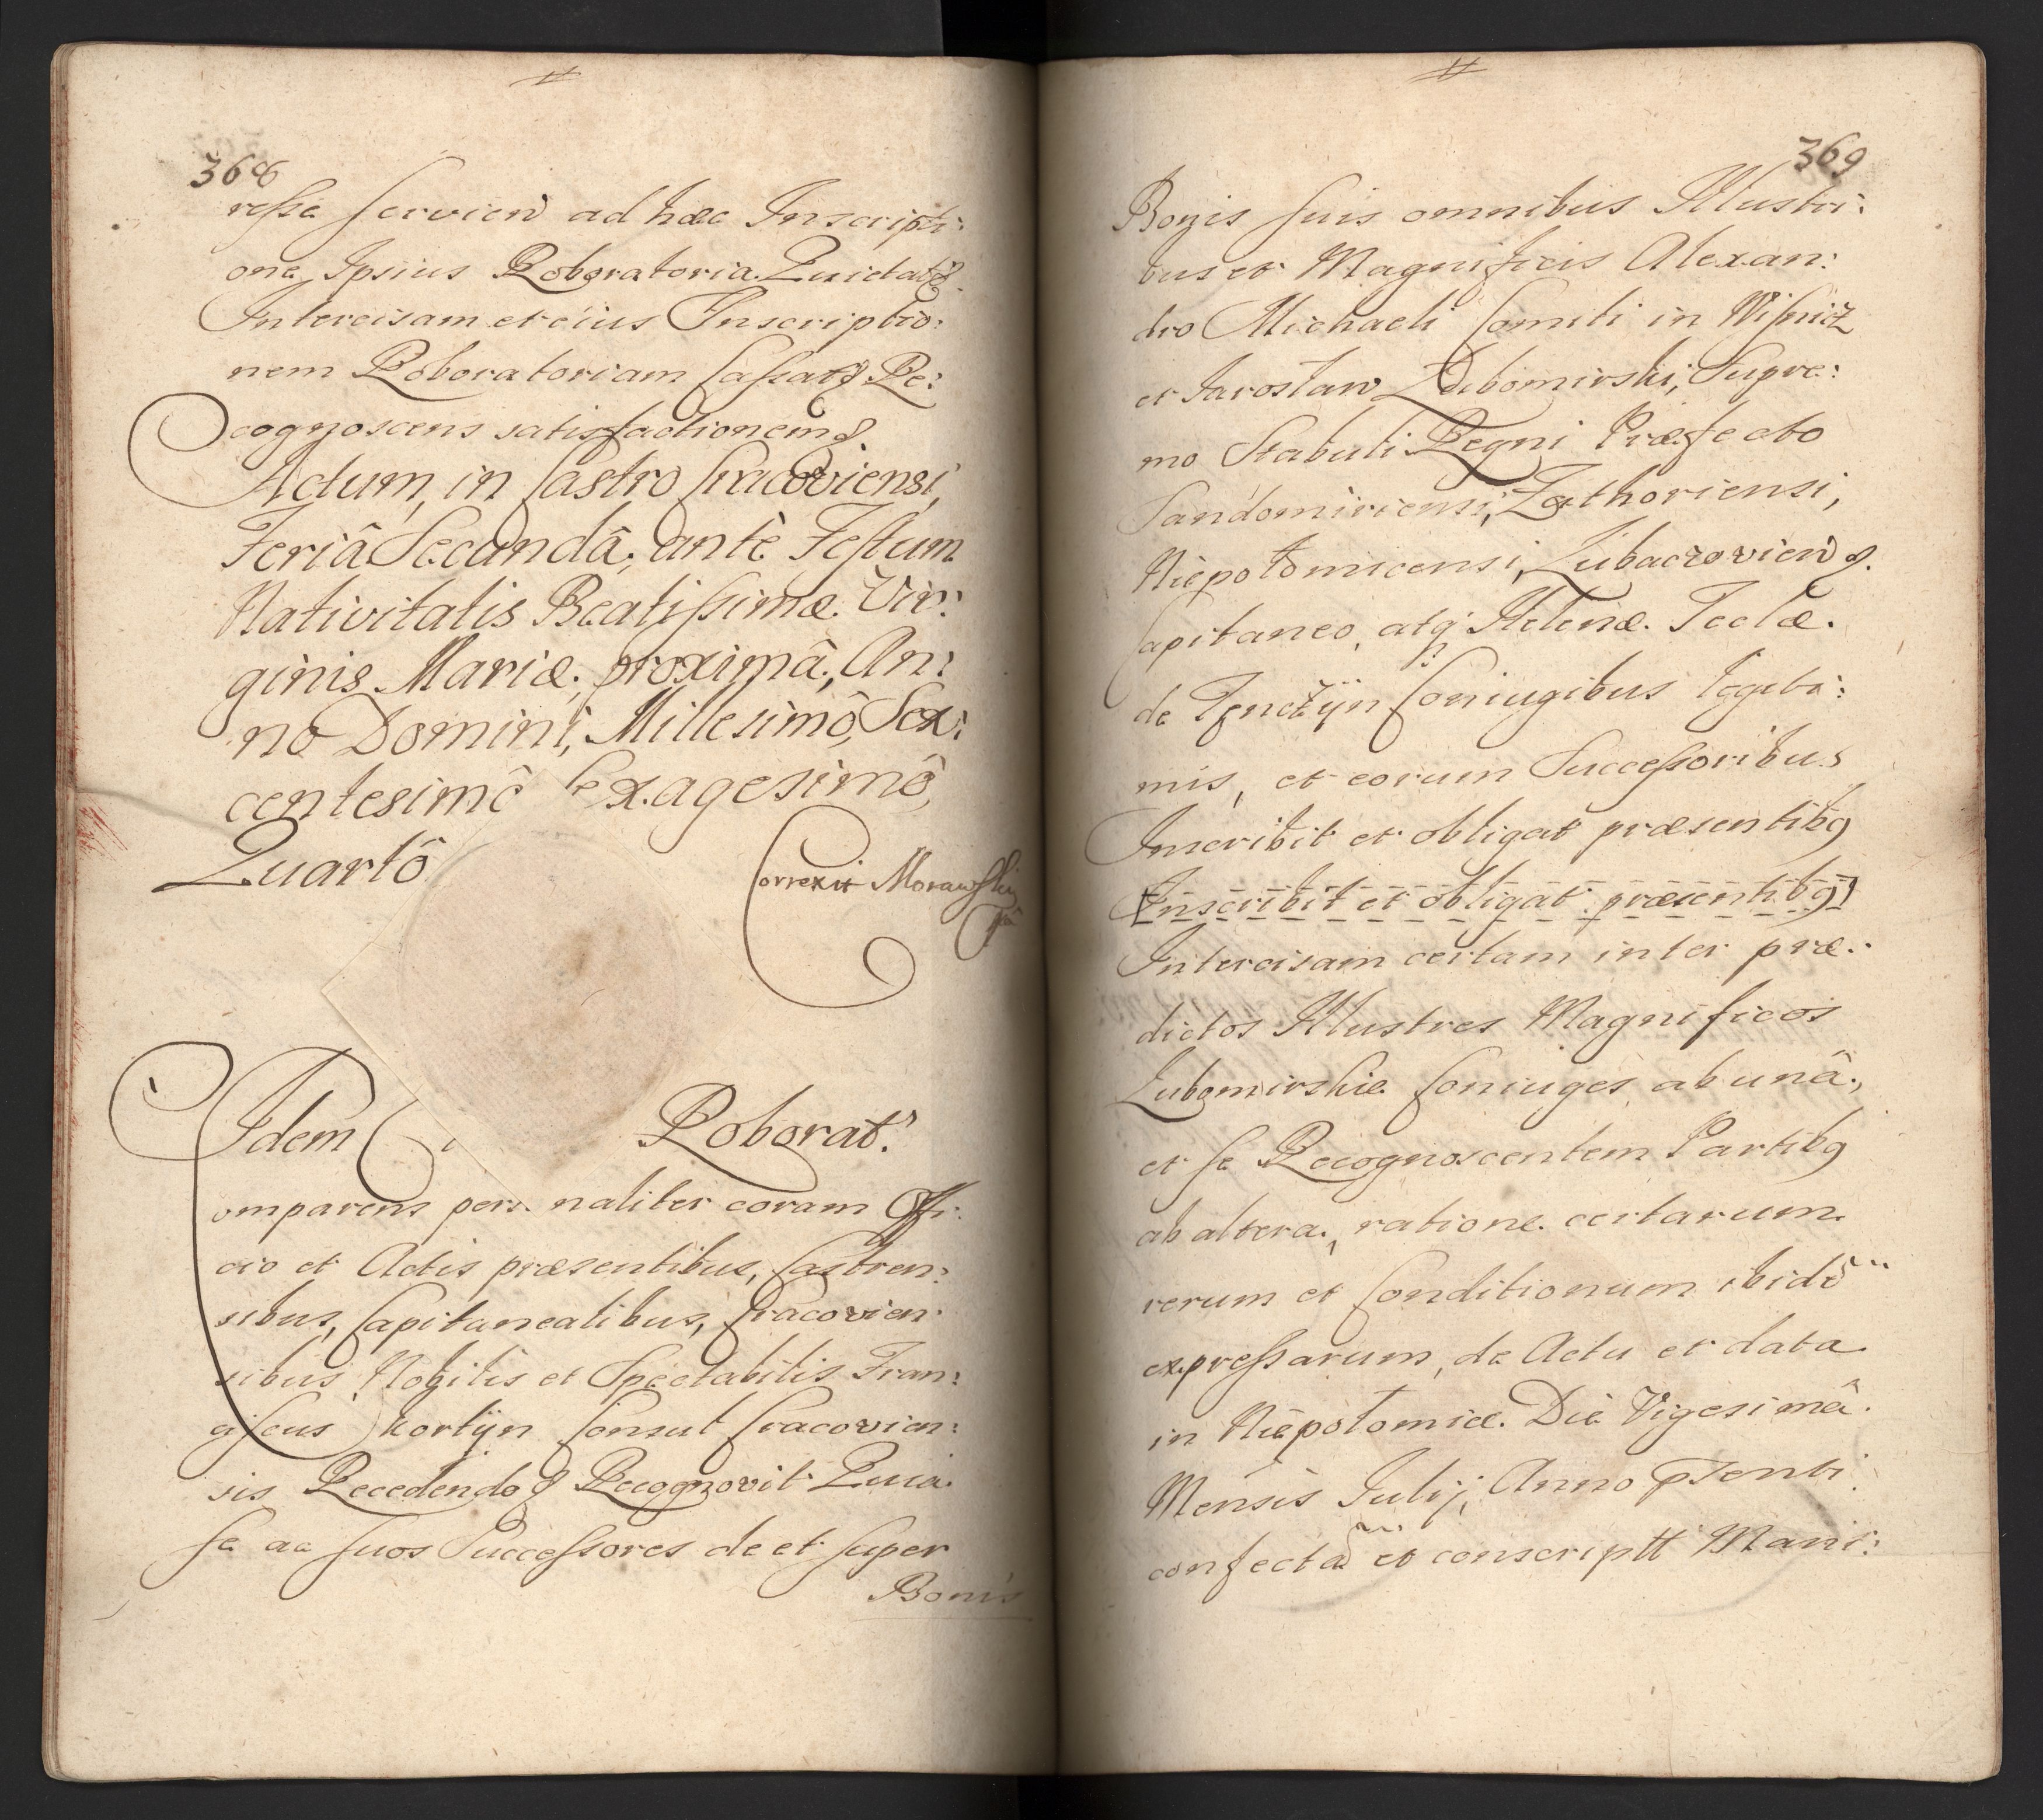 368
resse servien ad hæc Inscripti:
one Ipsius Roboratoria Quietat
Intercisam et eius Inscriptio:
nem Roboratoriam Cassat Re:
cognoscens satisfactionem
Actum, in Castro Cracoviensi,
Feriâ Secundâ, ante Festum
Nativitatis Beatissimæ Vir:
ginis Mariæ proximâ, An:
no Domini, Millesimô, Sex:
centesimô Sexagesimô,
Quartô
Correxit Morawski
Idem Roborat.
Comparens personaliter coram Offi:
cio et Actis præsentibus, Castren:
sibus, Capitanealibus, Cracovien:
sibus Nobilis et Spectabilis Fran:
ciscus Kortyn Consul Cracovien:
sis Recedendo Recognovit Quia
se ac suos Successores de et super
Bonis
369
Bonis suis omnibus Illustri:
bus et Magnificis Alexan:
dro Michaeli Comiti in Wisnicz
et Jaroslaw Lubomirski, Supre:
mo Stabuli Regni Præfecto
Sandomiriensi, Zathoriensi,
Niepolomicensi, Lubaczovien
Capitaneo, atq Helenæ Teclæ
de Tenczÿn Coniugibus legiti:
mis, et eorum Successoribus
Inscribit et obligat præsentibg
[Inscribit et obligat præsentibg]
Intercisam certam inter præ:
dictos Illustres Magnificos
Lubomirskie Coniuges, ab unâ,
et se Recognoscentem Partibg
ab altera, ratione certarum
rerum et Conditionum ibidē
expressarum, de Actu et data
in Niepolomice Die Vigesimâ
Mensis Julij, Anno pŝenti
confectā et conscriptt Mani: